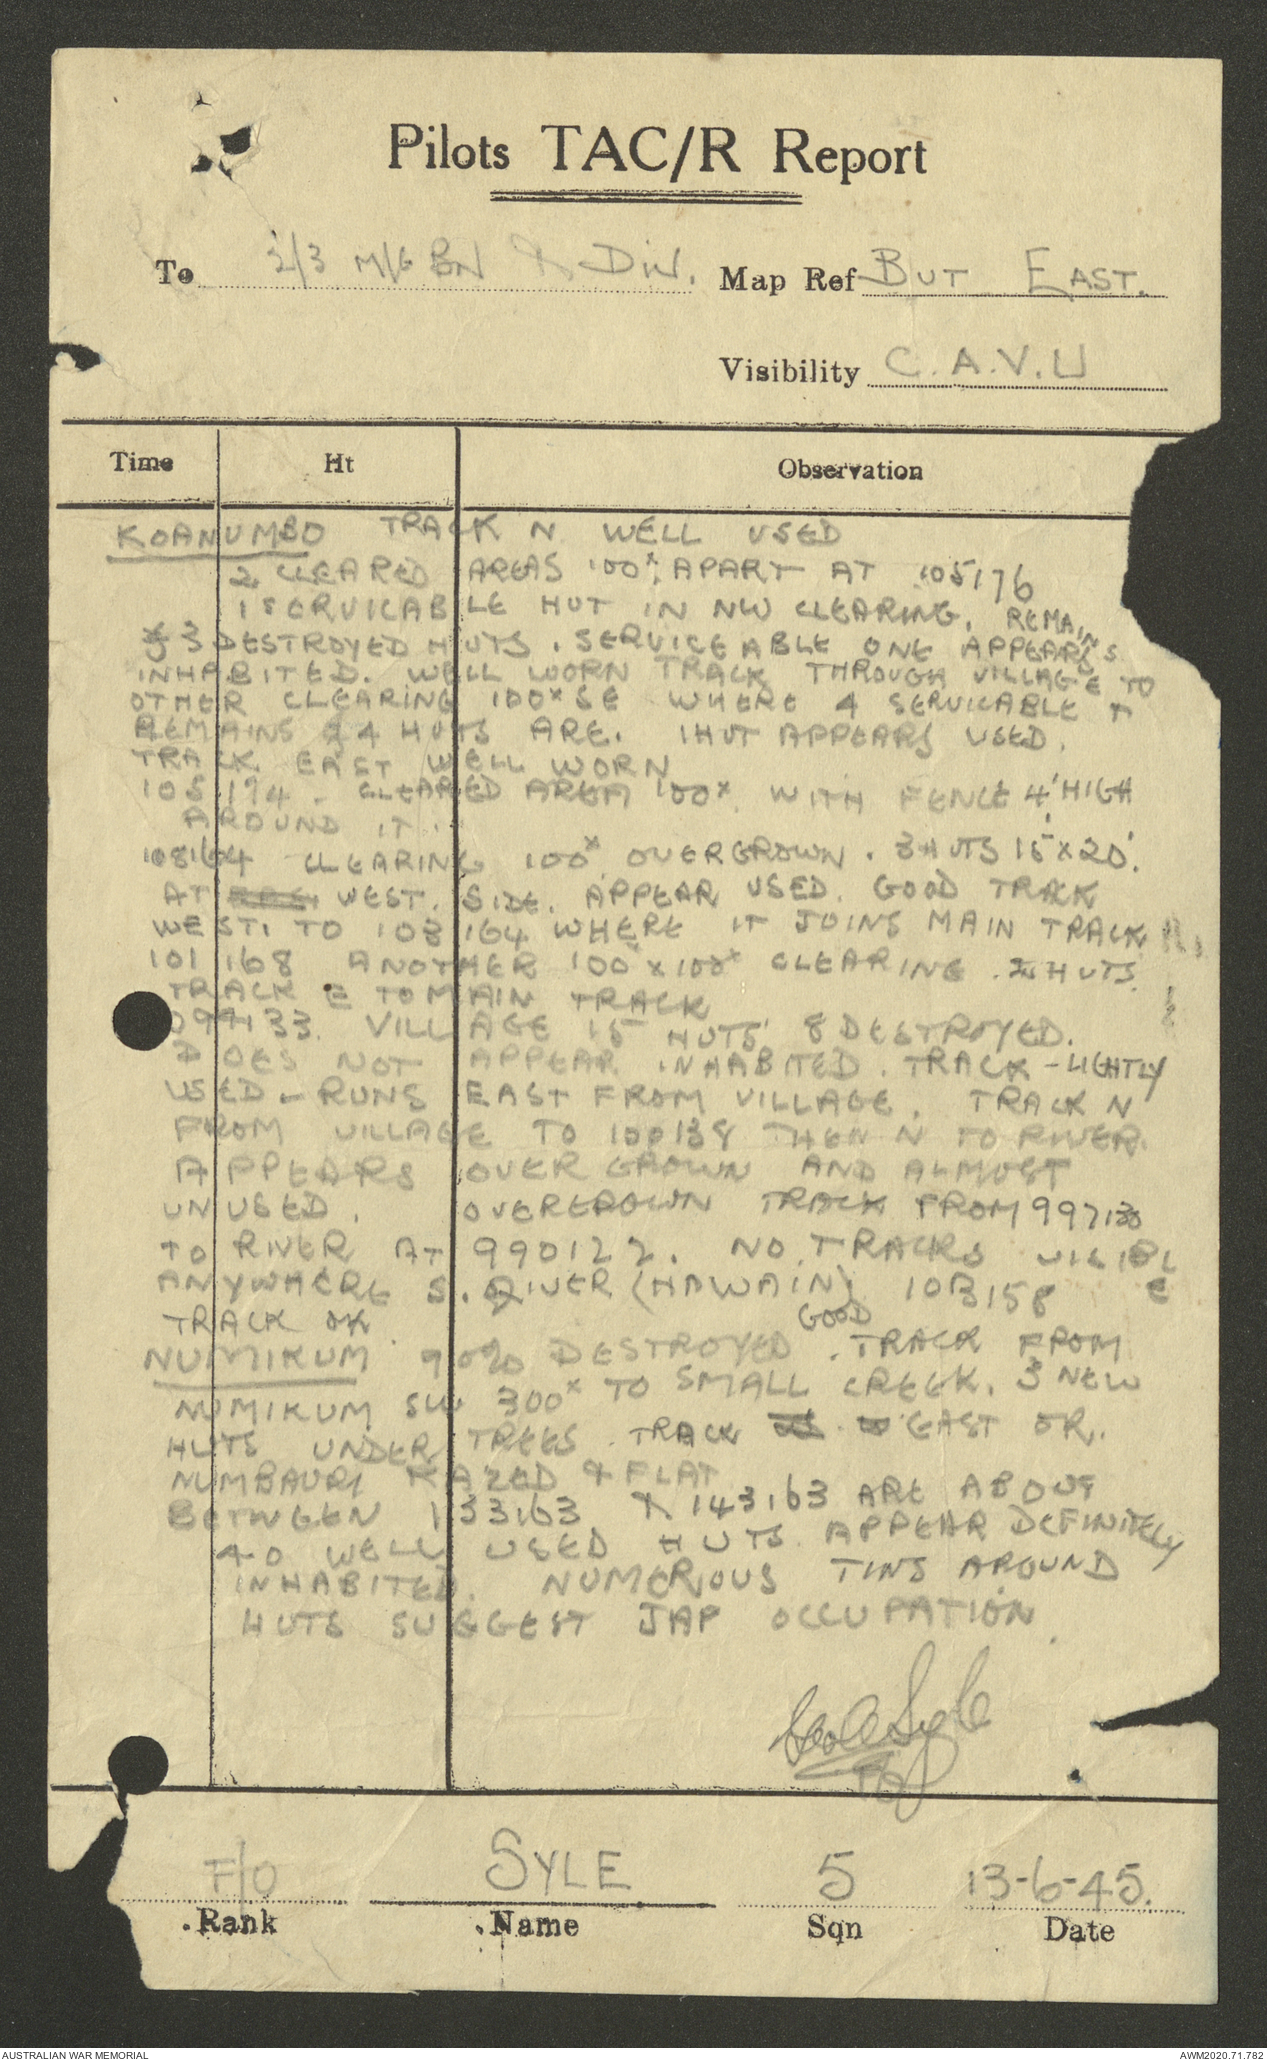 Pilots TAC/R Report
To 2/3 M/G BN & DIV. Map Ref BUT EAST.
Visibility C.A.V.U
Time Ht Observation
KOANUMBO TRACK N WELL USED
2 CLEARED AREAS 100x APART AT 105176
1 SERVICABLE HUT IN NW CLEARING. REMAINS
3 DESTROYED HUTS. SERVICEABLE ONE APPEARS
INHABITED. WELL WORN TRACK THROUGH VILLAGE TO
OTHER CLEARING 100x SE WHERE 4 SERVICABLE +
REMAINS 4 HUTS ARE. 1 HUT APPEARS USED.
TRACK EAST WELL WORN
105174 - CLEARED AREA 100x WITH FENCE 4' HIGH
AROUND IT.
108164 CLEARING 100x OVERGROWN. 3 HUTS 15' x 20'.
AT WEST. SIDE. APPEAR USED. GOOD TRACK
WEST. TO 103164 WHERE IT JOINS MAIN TRACK
101168 ANOTHER 100x x 100x CLEARING. HUTS.
TRACK E TO MAIN TRACK
099133. VILLAGE 15 HUTS 8 DESTROYED.
DOES NOT APPEAR INHABITED. TRACK - LIGHTLY
USED - RUNS EAST FROM VILLAGE. TRACK N
FROM VILLAGE TO 100138 THEN N TO RIVER.
APPEARS OVERGROWN AND ALMOST
UNUSED. OVERGROWN TRACK FROM 997130
TO RIVER AT 990122. NO TRACKS VISIBLE
ANYWHERE S. RIVER (HAWAIN) 103158
TRACK OK.
NUMIKUM 90% DESTROYED. GOOD TRACK FROM
NUMIKUM SW 300x TO SMALL CREEK. 3 NEW
HUTS UNDER TREES. TRACK EAST OK.
NUMBAURI RAZED & FLAT
BETWEEN 133163 & 143163 ARE ABOUT
40 WELL USED HUTS. APPEAR DEFINITELY
INHABITED. NUMERIOUS TINS AROUND
HUTS SUGGEST JAP OCCUPATION.
F/O SYLE 5 13-6-45.
Rank Name Sqn Date
AUSTRALIAN WAR MEMORIAL AWM2020.71.782